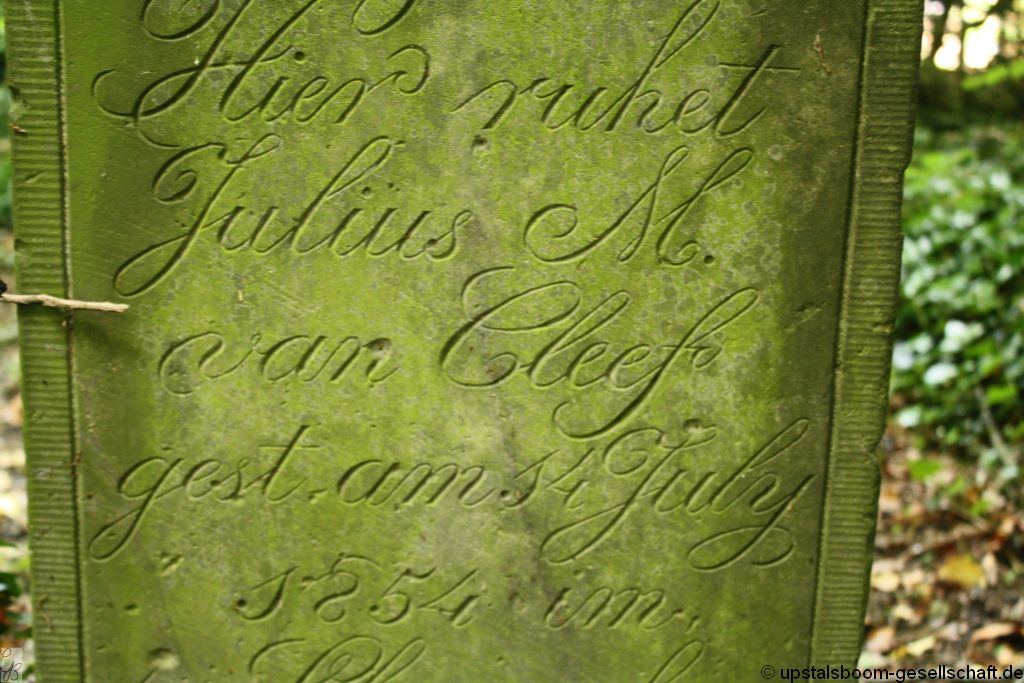 Hier ruhet
Julius M.
van Cleef
gest. am 14 July
1854 im
© upstalsboom-gesellschaft.de